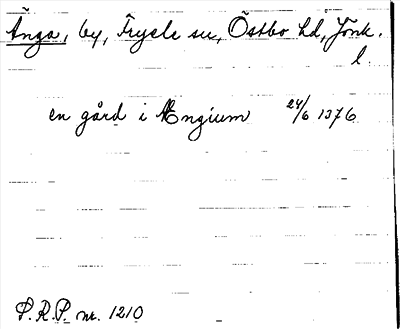 Änga, by, Fryele sn, Östbo hd, Jönk.
l.
en gård i Ængium 24/6 1376
S.R.P. nr. 1210